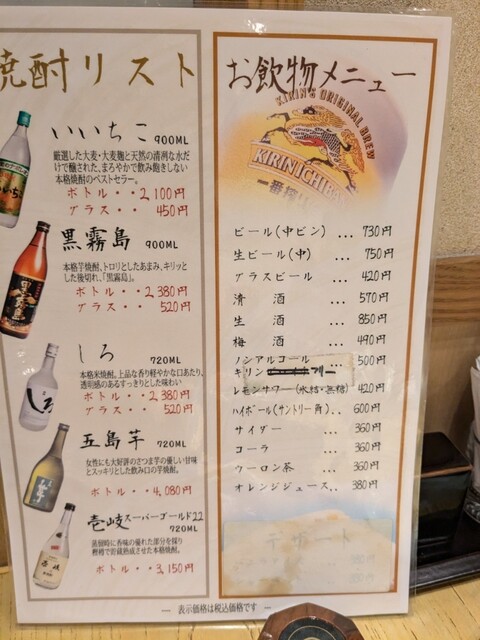 焼酎リスト
いいちこ 900ML
厳選した大麦・大麦麹と天然の清冽な水だ
けで醸された、まろやかで飲み飽きしない
本格焼酎のベストセラー。
ボトル・・2,100円
グラス・・ 450円
黒霧島 900ML
本格芋焼酎、トロリとしたあまみ、キリッと
した後切れ、「黒霧島」。
ボトル・・2,380円
グラス・・ 520円
しろ 720ML
本格米焼酎。上品な香り軽やかな口あたり、
透明感のあるすっきりとした味わい
ボトル・・2,380円
グラス・・ 520円
五島芋 720ML
女性にも大好評のさつま芋の優しい甘味
とスッキリとした飲み口の芋焼酎。
ボトル・・4,080円
壱岐スーパーゴールド22
720ML
蒸留時に香味の優れた部分を採り
樫樽で貯蔵熟成させた本格焼酎。
ボトル・・3,150円
お飲物メニュー
KIRIN'S ORIGINAL BREW
KIRIN ICHIBAN
一番搾り
ビール(中ビン) ... 730円
生ビール(中) ... 750円
グラスビール ... 420円
清 酒 ... 570円
生 酒 ... 850円
梅 酒 ... 490円
ノンアルコール ... 500円
キリン
レモンサワー(氷結・無糖) 420円
ハイボール(サントリー角).. 600円
サイダー ... 360円
コーラ ... 360円
ウーロン茶 ... 360円
オレンジジュース... 380円
デザート
― 表示価格は税込価格です ―